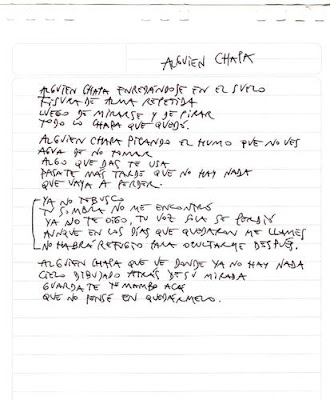 ALGUIEN CHAPA
ALGUIEN CHAPA ENREDÁNDOSE EN EL SUELO
FISURA DE ALMA REPETIDA
LUEGO DE MIRARSE Y DE PIRAR
TODO LO CHAPA QUE QUEDÓ.
ALGUIEN CHAPA PICANDO EL HUMO QUE NO VES
AGUA DE NO TOMAR
ALGO QUE DAS TE USA
PASATE MÁS TARDE QUE NO HAY NADA
QUE VAYA A PERDER.
YA NO TE BUSCO
TU SOMBRA NO ME ENCONTRÓ
YA NO TE OIGO, TU VOZ SOLA SE PERDIÓ
AUNQUE EN LOS DÍAS QUE QUEDARON ME LLAMES
NO HABRÁ REFUGIO PARA OCULTARME DESPUÉS.
ALGUIEN CHAPA QUE VE DONDE YA NO HAY NADA
CIELO DIBUJADO ATRÁS DE SU MIRADA
GUARDATE TU MAMBO ACÁ
QUE NO PENSÉ EN QUEDÁRMELO.